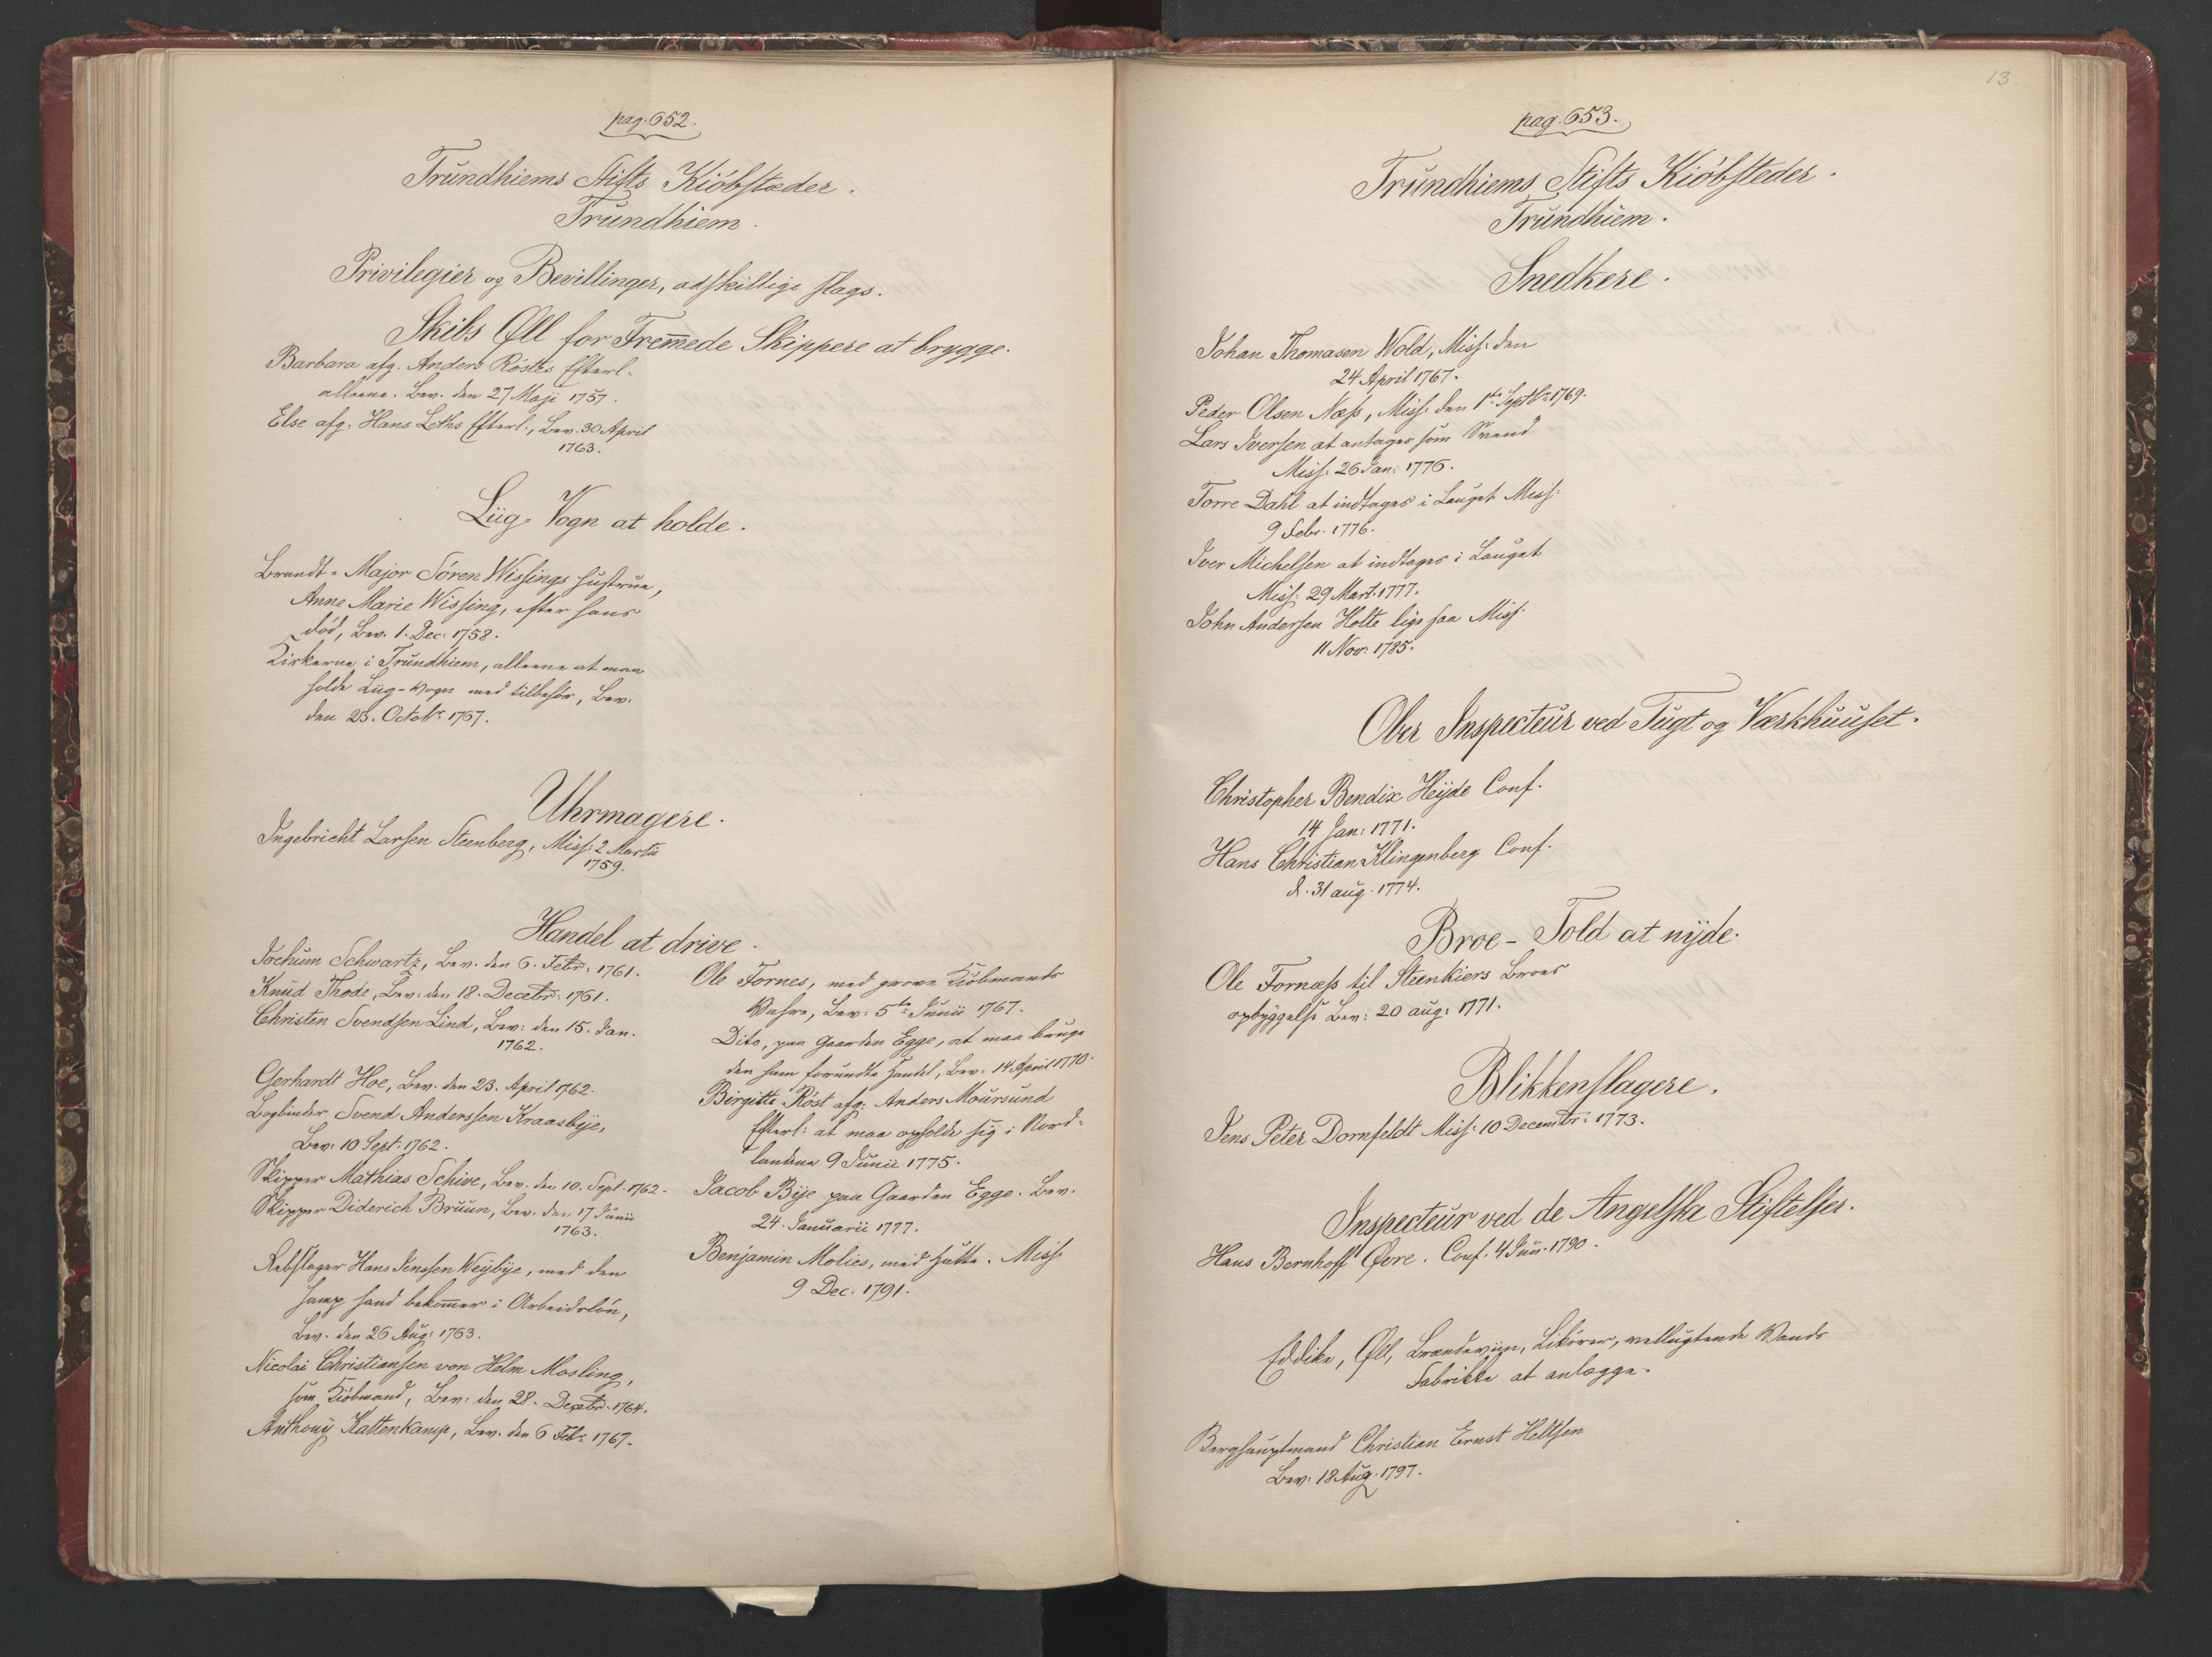 pag. 652.
Trundhiems Stifts Kiöbstæder.
Trundhiem.
Privilegier og Bevillinger, adskillige slags.
Skibs Øll for Fremede Skippere at brygge.
Barbara afg. Anders Röstes Efterl.
alleene. Bev. den 27 Maji 1757.
Else afg. Hans Leths Efterl., Bev. 30 April
1763.
Liig-Vogn at holde.
Brandt-Major Sören Wissings Hustrue,
Anne Marie Wissing, efter hans
död, Bev. 1. Dec. 1758.
Kirkerne i Trundhiem, alleene at maa
holde Liig-Vogn med tilbehör, Bev.
den 23. Octobr. 1767.
Uhrmagere.
Ingebricht Larsen Steenberg, Miss: 2 Martii
1759.
Handel at drive.
Jochum Schwartz, Bev. den 6. Febr. 1761.
Knud Thode, Bev: den 18. Decebr: 1761.
Christen Svendsen Lind, Bev: den 15. Jan.
1762.
Gerhardt Hoe, Bev. den 23. April 1762.
Bogbinder Svend Anderssen Kraasbÿe,
Bev: 10 Sept: 1762.
Skipper Mathias Schive, Bev. den 10. Sept. 1762.
Skipper Diderich Bruun, Bev. den 17 Junii
1763.
Rebslager Hans Jenssen Weÿbÿe, med den
Hamp hand bekomer i Arbeidslön,
Bev. den 26 Aug: 1763.
Nicolai Christiansen von Helm Mosling,
som Kiöbmand, Bev: den 28. Decebr. 1764.
Anthonÿ Kattenkamp, Bev. den 6 Feb: 1767.
Ole Fornes, med grove Kiöbmands
Wahre, Bev: 5te Junii 1767.
Dito, paa Gaarden Egge, at maa bruge
den ham forundte Handel, Bev: 14 April 1770.
Birgitte Röst afg: Anders Moursund
Efterl: at maa opholde sig i Nord-
landene 9 Junii 1775.
Jacob Bÿe paa Gaarden Egge. Bev.
24. Januarii 1777.
Benjamin Molies, med Hatte. Miss:
9 Dec. 1791.
13.
pag. 653.
Trundhiems Stifts Kiöbsteder.
Trundhiem.
Snedkere.
Johan Thomasen Wold, Miss: den
24 April 1767.
Peder Olsen Næss, Miss. den 1te Septbr 1769.
Lars Iversen at antages som Svend
Miss: 26 Jan: 1776.
Torre Dahl at indtages i Lauget Miss:
9 Febr. 1776.
Iver Michelsen at indtages i Lauget
Miss: 29 Mart. 1777.
John Andersen Holte lige saa Miss.
11 Nov: 1785.
Ober Inspecteur ved Tugt og Værkhuuset.
Christopher Bendix Heÿde Conf.
14 Jan: 1771.
Hans Christian Klingenberg Conf.
d. 31 aug. 1774.
Broe-Told at nÿde.
Ole Fornæss til Steenkiers Broes
opbÿggelse Bev: 20 aug: 1771.
Blikkenslagere.
Jens Peter Dornfeldt Miss: 10 Decembr: 1773.
Inspecteur ved de Angelske Stiftelser.
Hans Bernhoft Øvre. Conf. 4 Jun. 1790.
Eddike, Øll, Brændeviin, Likörer, vellugtende Vands
Fabrikke at anlægge.
Berghauptmand Christian Ernst Heltsen
Bev: 18 Aug. 1797.